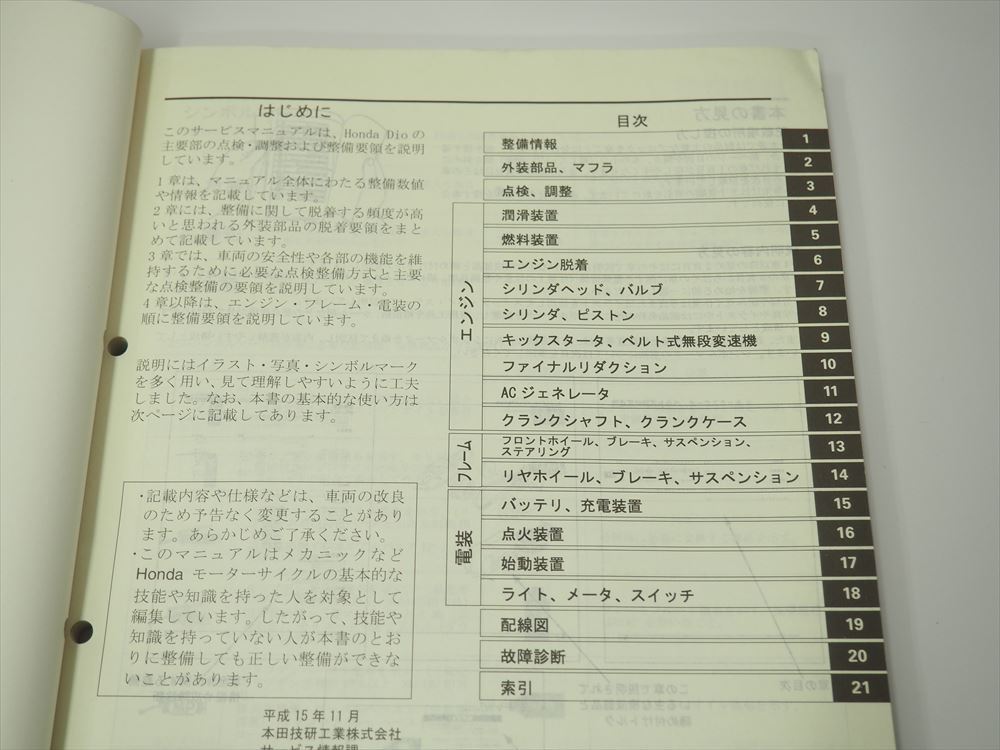 はじめに
このサービスマニュアルは、Honda Dioの
主要部の点検・調整および整備要領を説明
しています。
1章は、マニュアル全体にわたる整備数値
や情報を記載しています。
2章には、整備に関して脱着する頻度が高
いと思われる外装部品の脱着要領をまと
めて記載しています。
3章では、車両の安全性や各部の機能を維
持するために必要な点検整備方式と主要
な点検整備の要領を説明しています。
4章以降は、エンジン・フレーム・電装の
順に整備要領を説明しています。
説明にはイラスト・写真・シンボルマーク
を多く用い、見て理解しやすいように工夫
しました。なお、本書の基本的な使い方は
次ページに記載してあります。
・記載内容や仕様などは、車両の改良
のため予告なく変更することがあり
ます。あらかじめご了承ください。
・このマニュアルはメカニックなど
Honda モーターサイクルの基本的な
技能や知識を持った人を対象として
編集しています。したがって、技能や
知識を持っていない人が本書のとお
りに整備しても正しい整備ができな
いことがあります。
平成15年11月
本田技研工業株式会社
サービス情報課
目次
整備情報 1
外装部品、マフラ 2
点検、調整 3
エンジン
潤滑装置 4
燃料装置 5
エンジン脱着 6
シリンダヘッド、バルブ 7
シリンダ、ピストン 8
キックスタータ、ベルト式無段変速機 9
ファイナルリダクション 10
ACジェネレータ 11
クランクシャフト、クランクケース 12
フレーム
フロントホイール、ブレーキ、サスペンション、
ステアリング 13
リヤホイール、ブレーキ、サスペンション 14
電装
バッテリ、充電装置 15
点火装置 16
始動装置 17
ライト、メータ、スイッチ 18
配線図 19
故障診断 20
索引 21